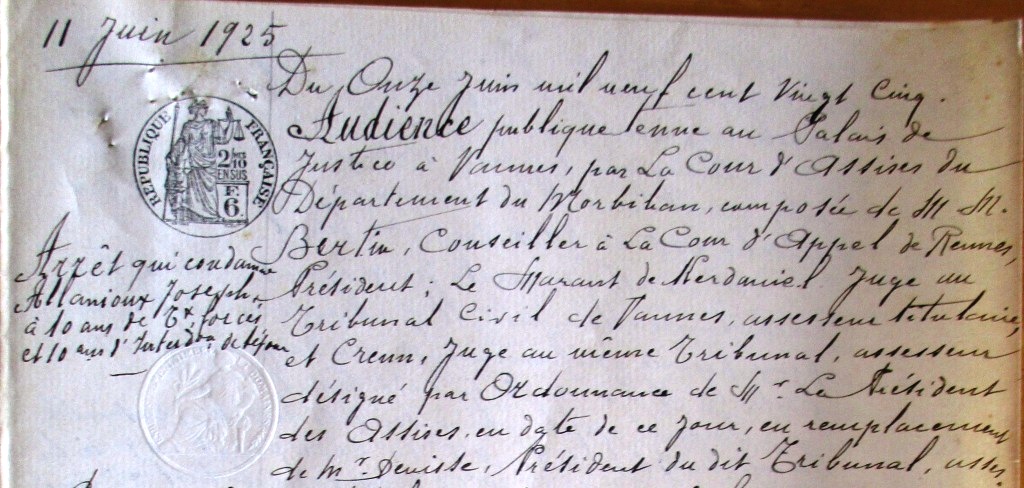 11 Juin 1925
Du Onze Juin mil neuf cent Vingt Cinq.
Audience publique tenue au Palais de
Justice à Vannes, par La Cour d'Assises du
Département du Morbihan, composée de M M.
Bertin, Conseiller à La Cour d'Appel de Rennes,
Président; Le Marant de Kerdaniel Juge au
Tribunal Civil de Vannes, assesseur titulaire,
et Crenn, Juge au même Tribunal, assesseur
désigné par Ordonnance de Mr. Le Président
des Assises, en date de ce jour, en remplacement
de Mr Devisse, Président du dit Tribunal, asses-
RÉPUBLIQUE FRANÇAISE
2/10
EN SUS
F.
6
Arrêt qui condamne
Allanioux Joseph,
à 10 ans de Tx forcés
et 10 ans d'Interdon de séjour